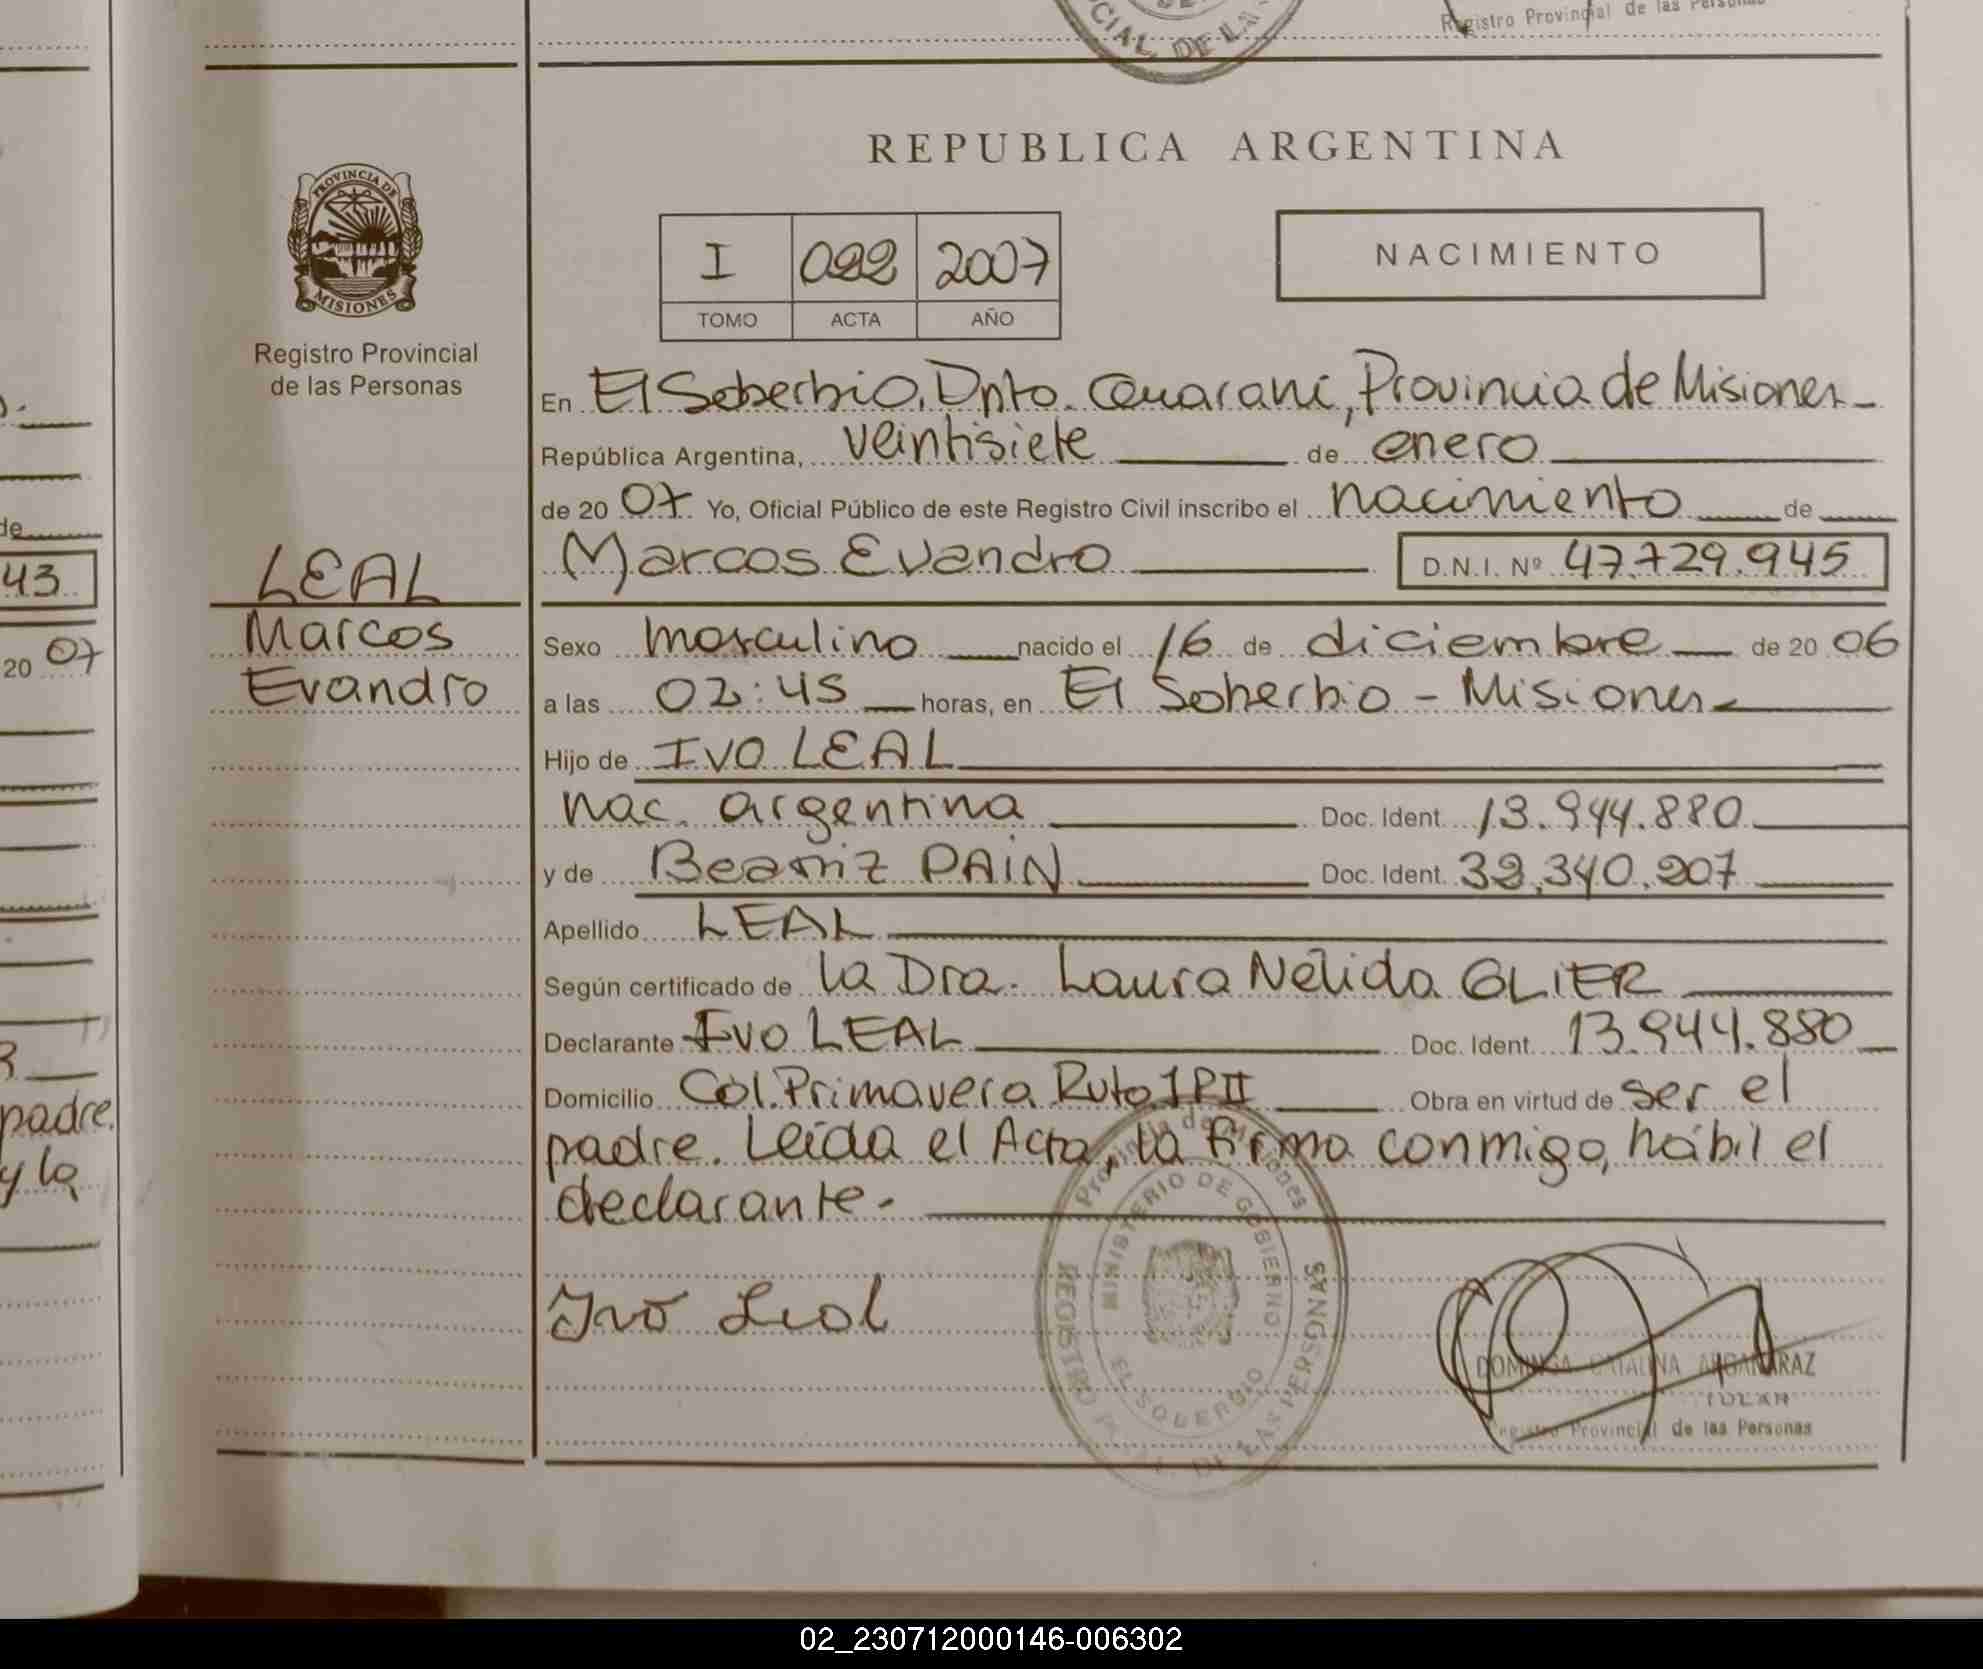 CIAL DE LA
Registro Provincial de las Personas
REPUBLICA ARGENTINA
PROVINCIA DE
MISIONES
Registro Provincial
de las Personas
I 022 2007
TOMO ACTA AÑO
NACIMIENTO
En El Soberbio, Dpto. Guaraní, Provincia de Misiones
República Argentina, veintisiete de enero
de 20 07 Yo, Oficial Público de este Registro Civil inscribo el nacimiento de
de
LEAL
Marcos Evandro D.N.I. Nº 47.729.945
43
Marcos
Sexo masculino nacido el 16 de diciembre de 20 06
20 07
Evandro
a las 02:45 horas, en El Soberbio - Misiones
Hijo de IVO LEAL
nac. argentina Doc. Ident. 13.944.880
y de Beatriz PAIN Doc. Ident. 32.340.207
Apellido LEAL
Según certificado de la Dra. Laura Nélida GLIER
Declarante Ivo LEAL Doc. Ident. 13.944.880
Domicilio Col. Primavera Ruta 1PII Obra en virtud de ser el
padre.
padre. Leída el Acta, la firma conmigo, hábil el
y la
declarante.
Provincia de Misiones
MINISTERIO DE GOBIERNO
EL SOBERBIO
REGISTRO DE LAS PERSONAS
Ivo Leal
DOMINGA CATALINA ARGAÑARAZ
TITULAR
Registro Provincial de las Personas
02_230712000146-006302